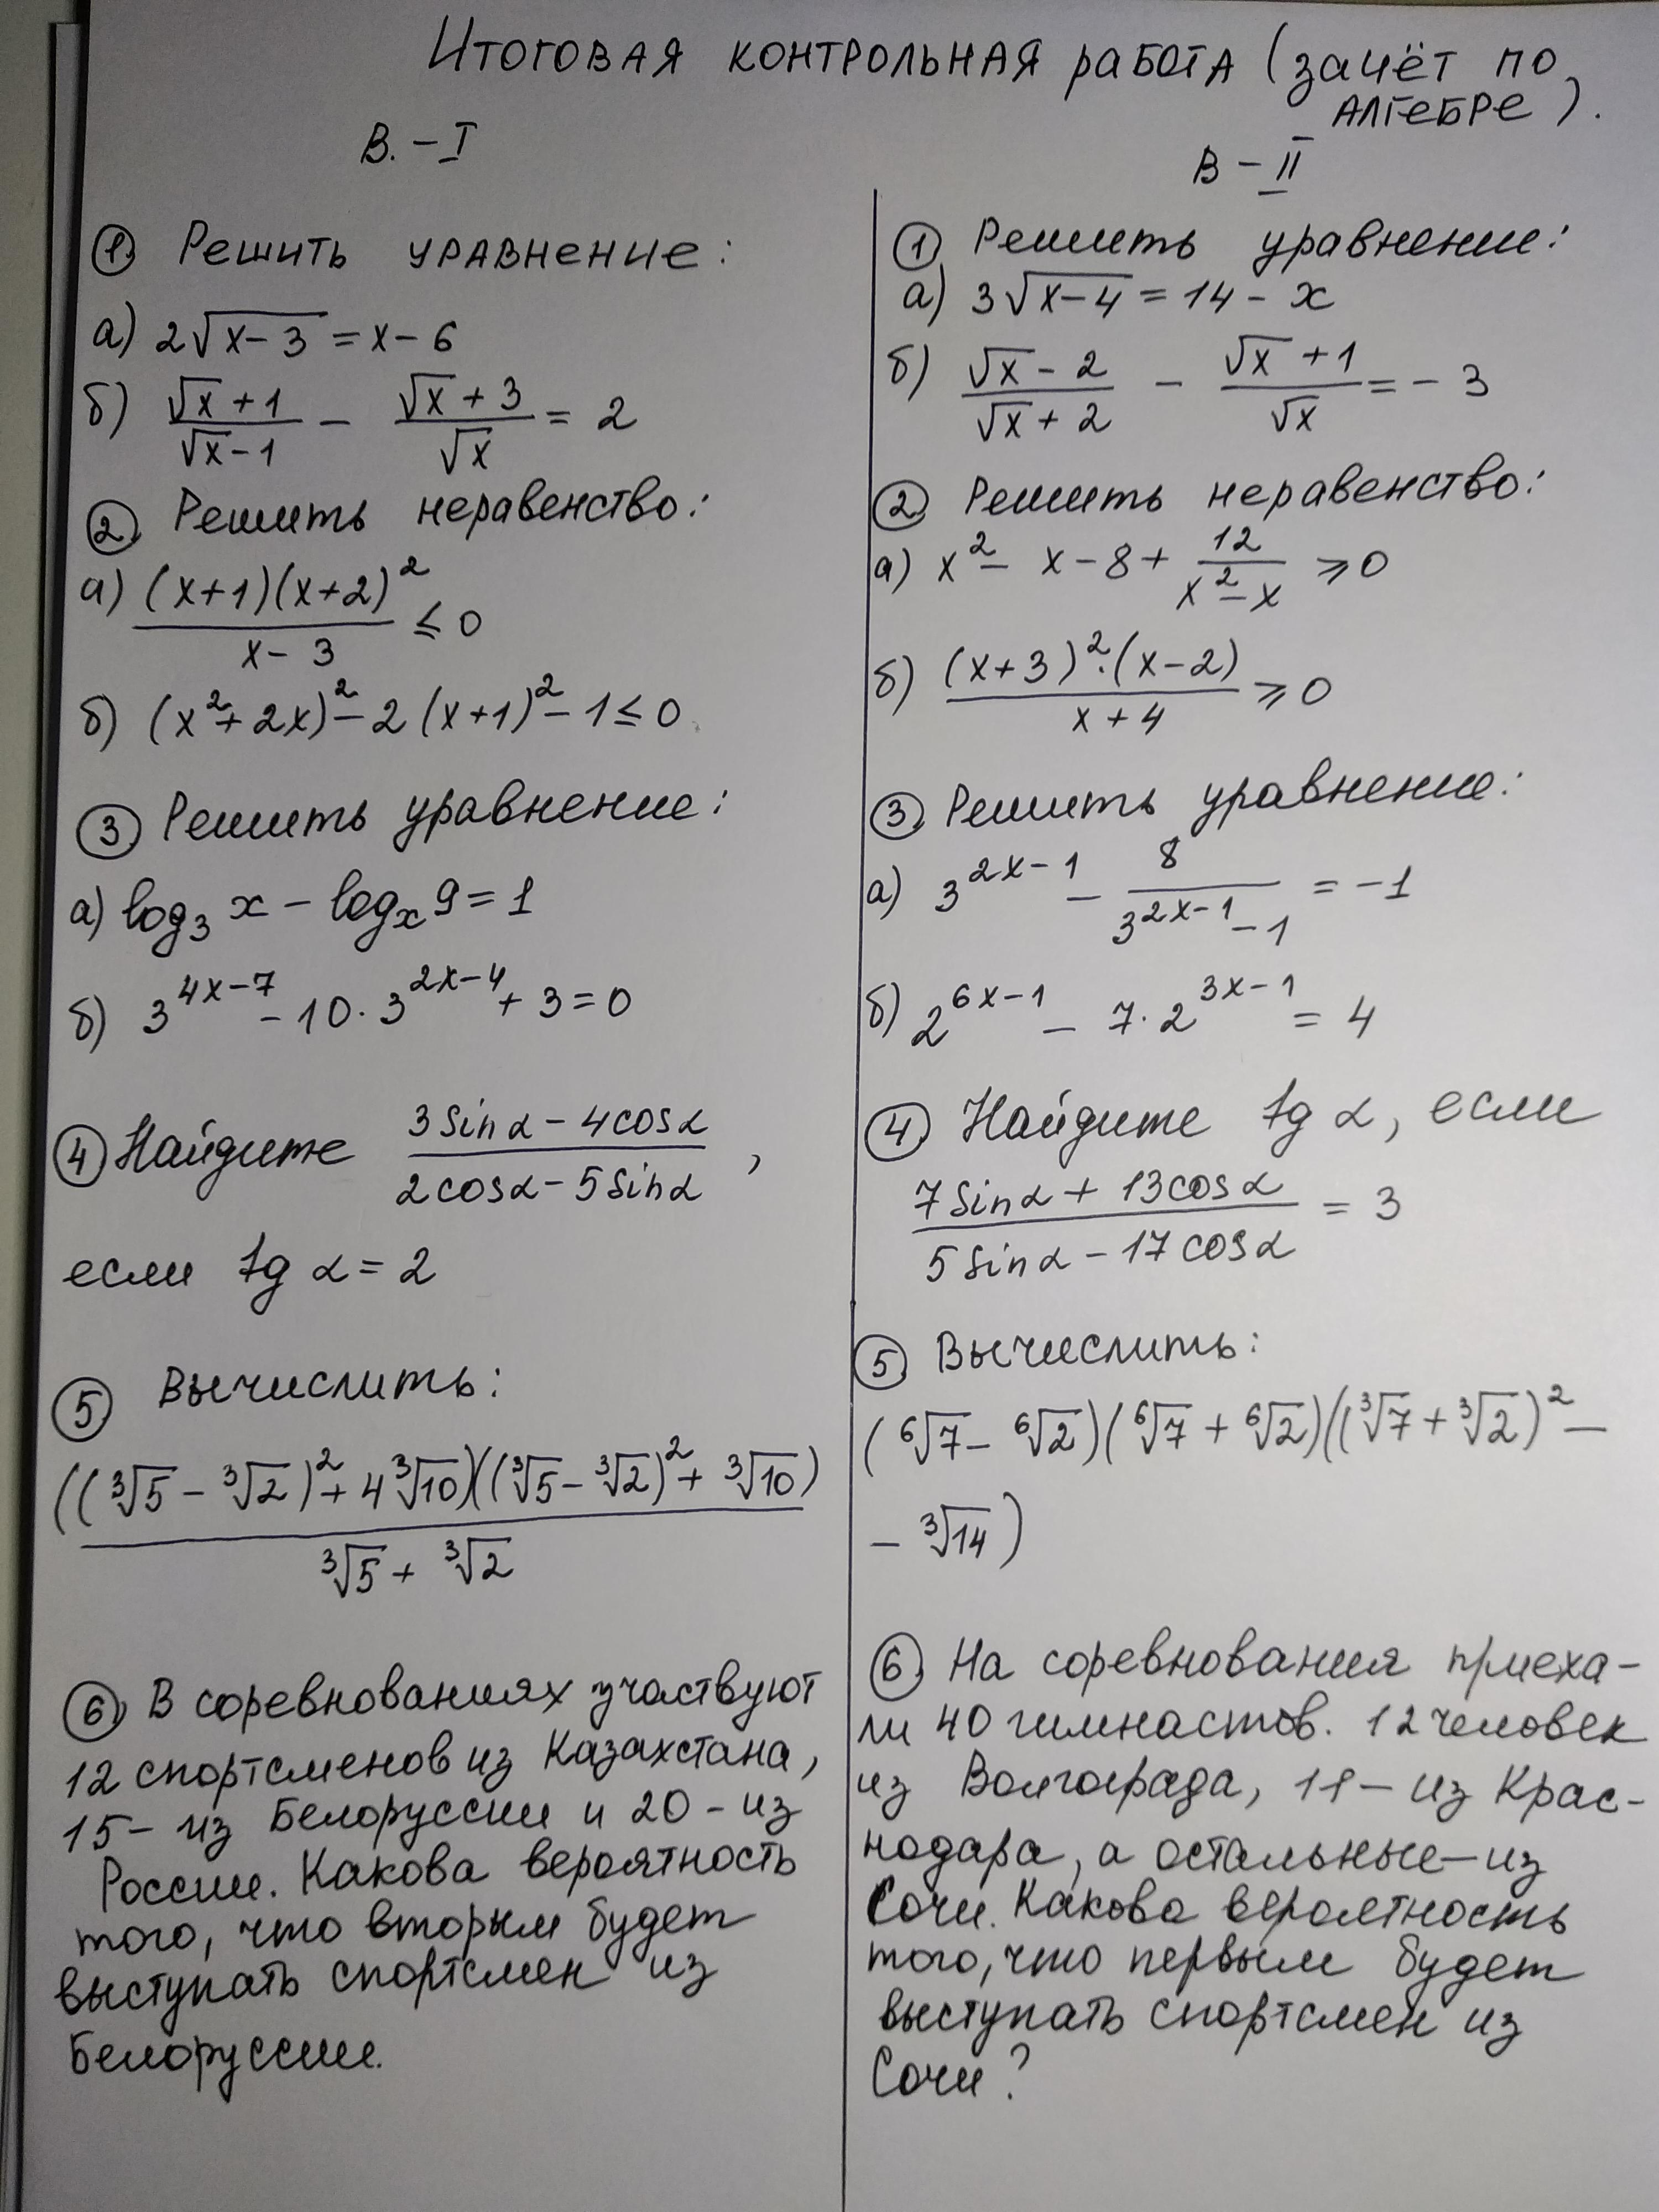 Итоговая контрольная работа (зачёт по
алгебре).
В. – I
① Решить уравнение:
а) 2√(x-3) = x - 6
б) (√x + 1)/(√x - 1) - (√x + 3)/√x = 2
② Решить неравенство:
а) (x+1)(x+2)²/(x - 3) ≤ 0
б) (x² + 2x)² - 2(x+1)² - 1 ≤ 0
③ Решить уравнение:
а) log₃ x - logₓ 9 = 1
б) 3^(4x-7) - 10 · 3^(2x-4) + 3 = 0
④ Найдите (3 sin α - 4 cos α)/(2 cos α - 5 sin α),
если tg α = 2
⑤ Вычислить:
((∛5 - ∛2)² + 4∛10)((∛5 - ∛2)² + ∛10)/(∛5 + ∛2)
⑥ В соревнованиях участвуют
12 спортсменов из Казахстана,
15 – из Белоруссии и 20 – из
России. Какова вероятность
того, что вторым будет
выступать спортсмен из
Белоруссии.
В – II
① Решить уравнение:
а) 3√(x-4) = 14 - x
б) (√x - 2)/(√x + 2) - (√x + 1)/√x = - 3
② Решить неравенство:
а) x² - x - 8 + 12/(x² - x) ⩾ 0
б) (x+3)² · (x-2)/(x + 4) ⩾ 0
③ Решить уравнение:
а) 3^(2x-1) - 8/(3^(2x-1) - 1) = -1
б) 2^(6x-1) - 7 · 2^(3x-1) = 4
④ Найдите tg α, если
(7 sin α + 13 cos α)/(5 sin α - 17 cos α) = 3
⑤ Вычислить:
(⁶√7 - ⁶√2)(⁶√7 + ⁶√2)((∛7 + ∛2)² -
- ∛14)
⑥ На соревнования приеха-
ли 40 гимнастов. 12 человек
из Волгограда, – из Крас-
нодара, а остальные – из
Сочи. Какова вероятность
того, что первым будет
выступать спортсмен из
Сочи?